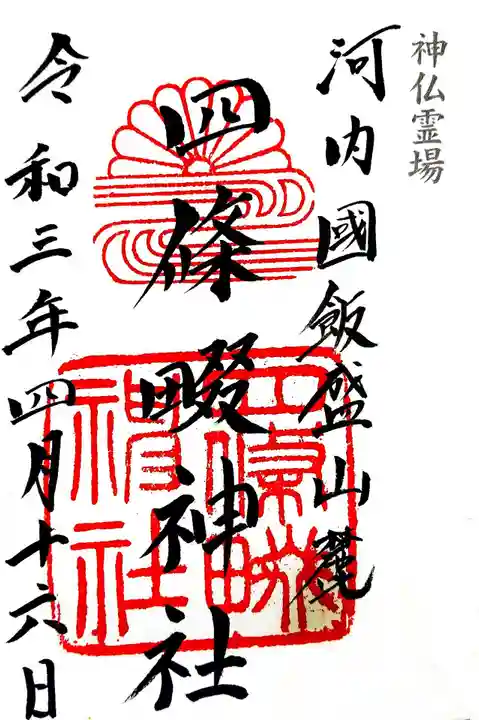 神仏霊場
河内國飯盛山麓
四條畷神社
令和三年四月十六日
四條畷
神社